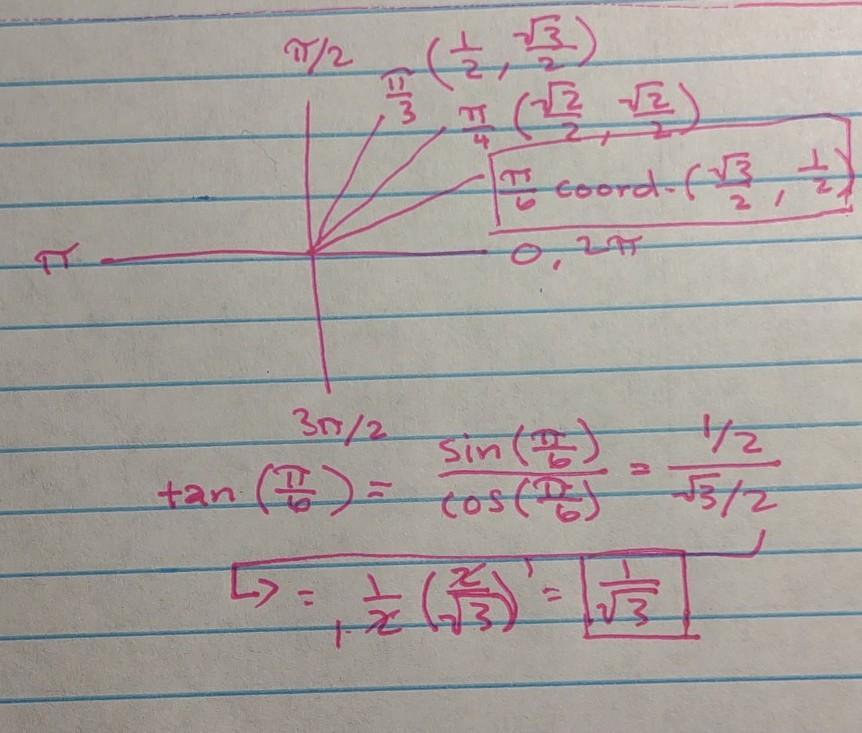 π/2
π/3 (1/2, √3/2)
π/4 (√2/2, √2/2)
π/6 coord-(√3/2, 1/2)
π
0, 2π
3π/2
tan (π/6) = sin(π/6)/cos(π/6) = 1/2 / √3/2
↳ = 1/2 (2/√3) = 1/√3